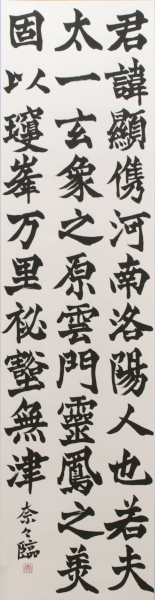 君諱顯儁河南洛陽人也若夫
太一玄象之原雲門靈鳳之美
固以瓊峯万里祕壑無津
奈々臨